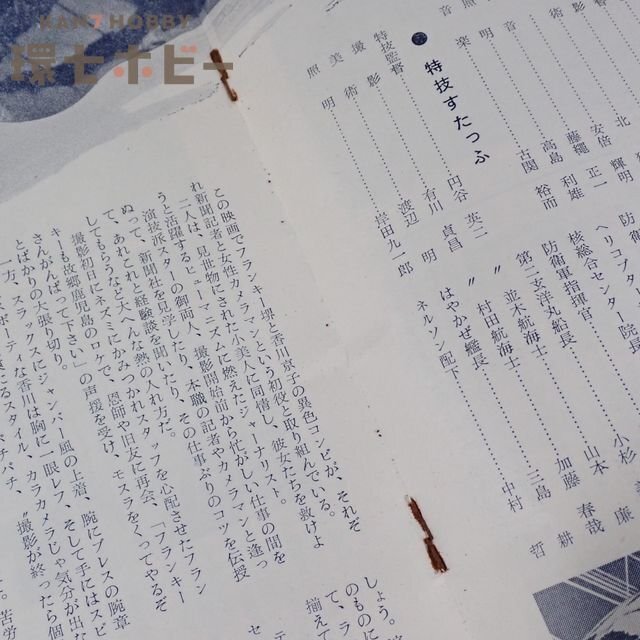 KAN7 HOBBY
環七ホビー
音
影
術
音
楽
明
照
安倍 輝明
藤繩 正一
高島 利雄
古関 裕而
●特技すたっふ
特技監督 円谷 英二
撮影 有川 貞昌
美術 渡辺 明
照明 岸田九一郎
防衛
ヘリコプター
核総合センター院長
防衛軍指揮官
第二玄洋丸船長 小杉
並木航海士 山本 廉
〃 村田航海士 加藤 春哉
はやかぜ艦長 三島 耕
ネルソン配下 中村 哲
この映画でフランキー堺と香川京子の異色コンビが、それぞ
れ新聞記者と女性カメラマンという初役と取り組んでいる。
二人は、見世物にされた小美人に同情し、彼女たちを救けよ
うと活躍するヒューマニズムに燃えたジャーナリスト。
演技派スターの御両人、撮影開始前から忙がしい仕事の間を
ぬって、新聞社を見学したり、本職の記者やカメラマンと逢っ
て、あれこれと経験談を聞いたり、その仕事ぶりのコツを伝授
してもらうなど大へんな熱の入れ方だ。
撮影初日にネズミにかみつかれスタッフを心配させたフラン
キーも故郷鹿児島のロケで、恩師や旧友に再会、「フランキー
さんがんばって下さい」の声援を受け、モスラをくってやるぞ
とばかりの大張り切り。
一方、スラックスにジャンパー風の上着、腕にプレスの腕章
ーティな香川は胸に一眼レフ、そして手にはスピ
スタイル。カラカメラじゃ気分が出な
パチパチ、〝撮影が終ったら個
苦労
しょう。
のものに
て、ラ
揃えて
テ
セ